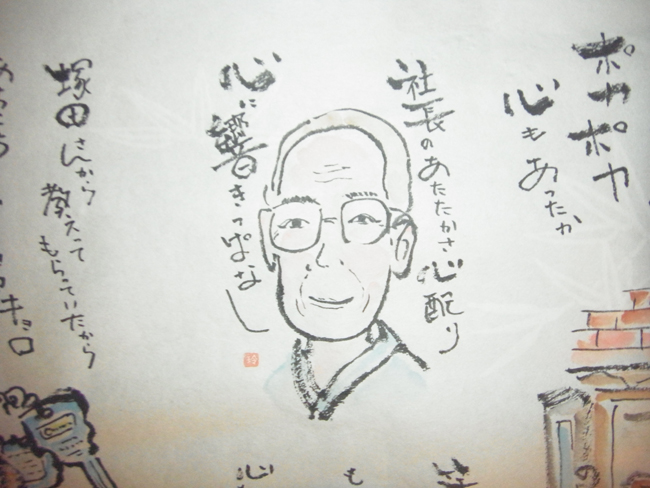 ポカポカ
心もあったか
社長のあたたかさ心配り
心に響きっぱなし
塚田さんから
教えて
もらっていたから
心
も